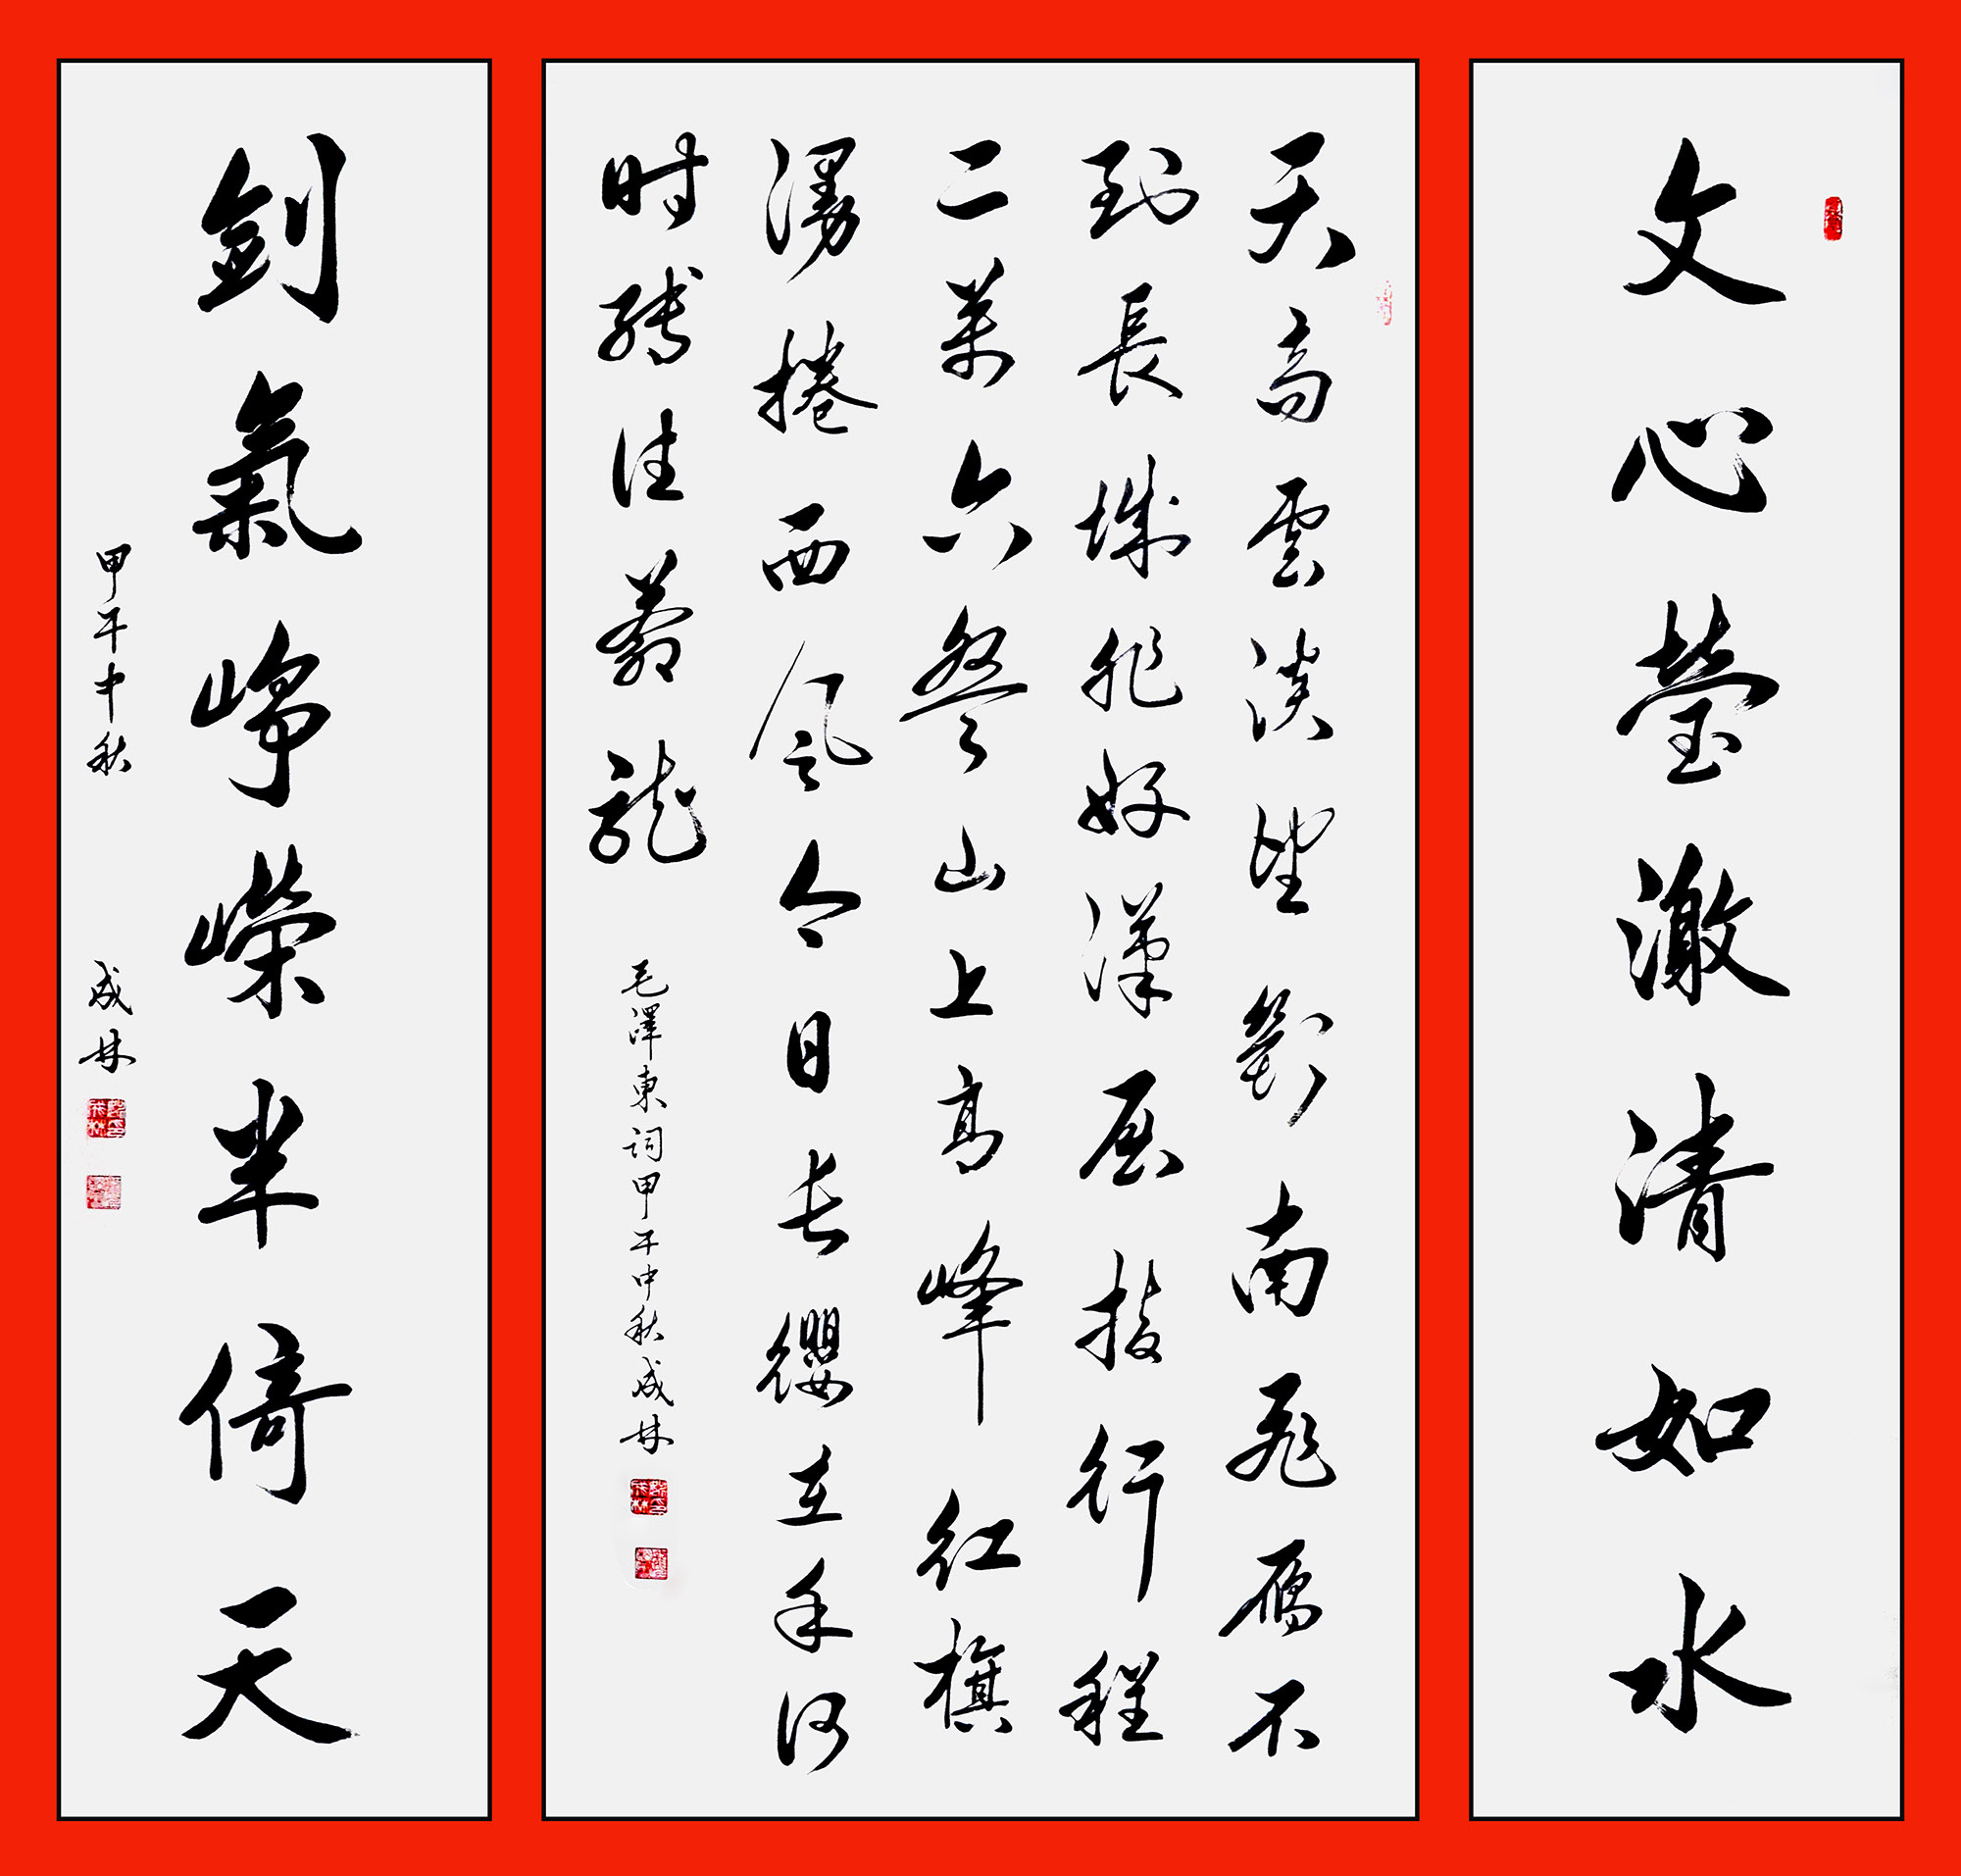 文心瑩澈清如水
天高雲淡望斷南飛雁不
到長城非好漢屈指行程
二萬六盤山上高峰紅旗
漫捲西風今日长纓在手何
时縛住蒼龍
毛澤東詞甲午中秋成林
劍氣崢嶸半倚天
甲午中秋 成林